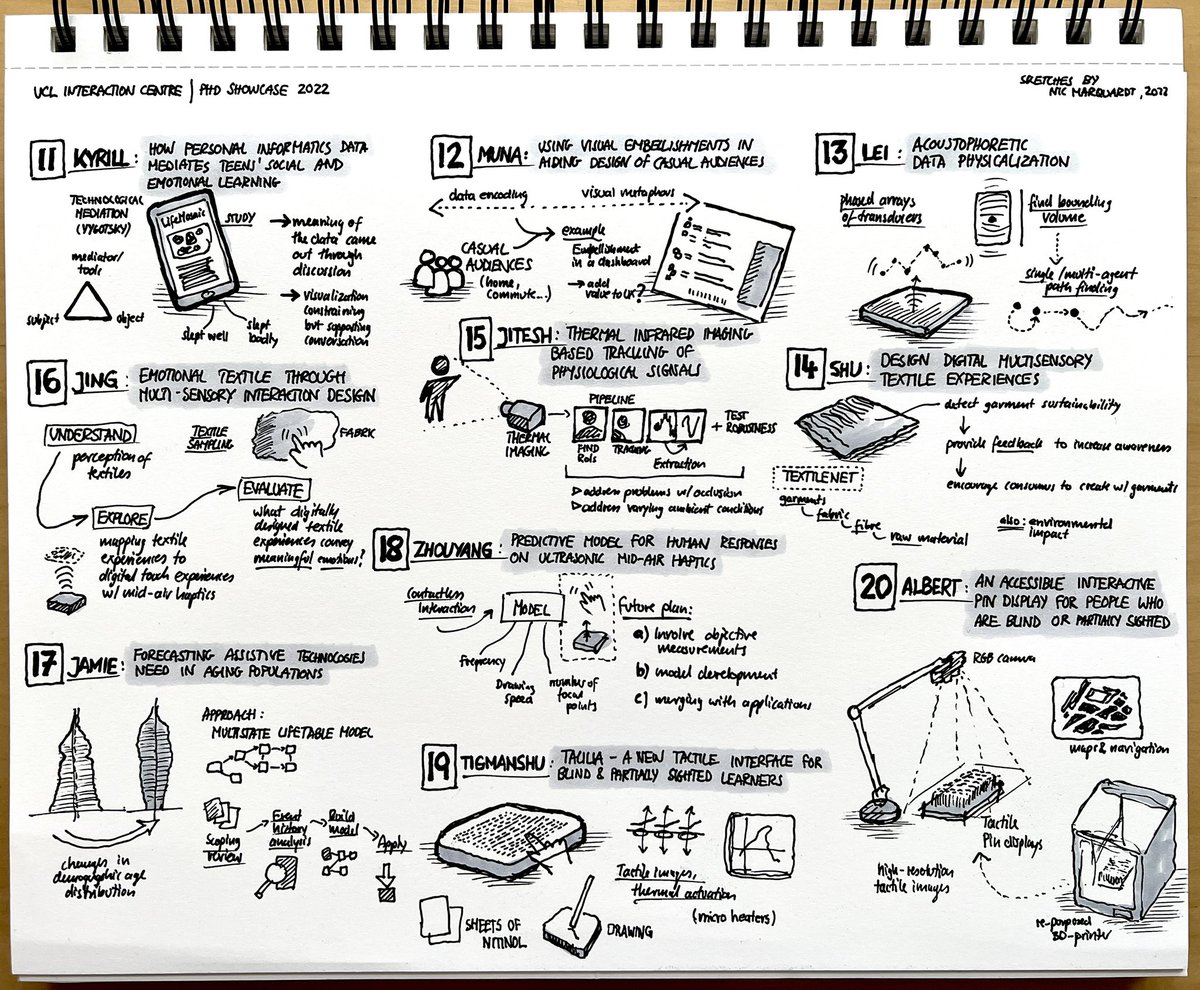 UCL INTERACTION CENTRE | PHD SHOWCASE 2022
SKETCHES BY
NIC MARQUARDT, 2022
11 KYRILL: HOW PERSONAL INFORMATICS DATA
MEDIATES TEENS' SOCIAL AND
EMOTIONAL LEARNING
TECHNOLOGICAL
MEDIATION
(VYGOTSKY)
mediator/
tools
subject
object
LifeMosaic
slept well
slept
badly
STUDY
meaning of
the data came
out through
discussion
visualization
constraining
but supporting
conversation
12 MUNA: USING VISUAL EMBELLISHMENTS IN
AIDING DESIGN OF CASUAL AUDIENCES
data encoding
visual metaphors
CASUAL
AUDIENCES
(home,
commute...)
example
Embellishment
in a dashboard
add
value to UX?
13 LEI: ACOUSTOPHORETIC
DATA PHYSICALIZATION
phased arrays
of transducers
find bounding
volume
single/multi-agent
path finding
14 SHU: DESIGN DIGITAL MULTISENSORY
TEXTILE EXPERIENCES
detect garment sustainability
provide feedback to increase awareness
encourage consumers to create w/ garments
TEXTILENET
garments
fabric
fibre
raw material
also: environmental
impact
15 JITESH: THERMAL INFRARED IMAGING
BASED TRACKING OF
PHYSIOLOGICAL SIGNALS
THERMAL
IMAGING
PIPELINE
FIND
ROIs
TRACKING
Extraction
+ TEST
ROBUSTNESS
address problems w/ occlusion
address varying ambient conditions
16 JING: EMOTIONAL TEXTILE THROUGH
MULTI-SENSORY INTERACTION DESIGN
UNDERSTAND
perception of
textiles
TEXTILE
SAMPLING
FABRIC
EXPLORE
mapping textile
experiences to
digital touch experiences
w/ mid-air haptics
EVALUATE
what digitally
designed textile
experiences convey
meaningful emotions?
17 JAMIE: FORECASTING ASSISTIVE TECHNOLOGIES
NEED IN AGING POPULATIONS
changes in
demographic age
distribution
APPROACH:
MULTISTATE LIFETABLE MODEL
Scoping
review
Event
history
analysis
Build
model
Apply
18 ZHOUYANG: PREDICTIVE MODEL FOR HUMAN RESPONSES
ON ULTRASONIC MID-AIR HAPTICS
contactless
interaction
MODEL
Frequency
Drawing
speed
number of
focal
points
Future plan:
a) Involve objective
measurements
b) model development
c) merging with applications
19 TIGMANSHU: TACILIA - A NEW TACTILE INTERFACE FOR
BLIND & PARTIALLY SIGHTED LEARNERS
Tactile images,
thermal actuation
(micro heaters)
SHEETS OF
NITINOL
DRAWING
20 ALBERT: AN ACCESSIBLE INTERACTIVE
PIN DISPLAY FOR PEOPLE WHO
ARE BLIND OR PARTIALLY SIGHTED
RGB camera
maps & navigation
Tactile
Pin displays
high-resolution
tactile images
re-purposed
3D-printer